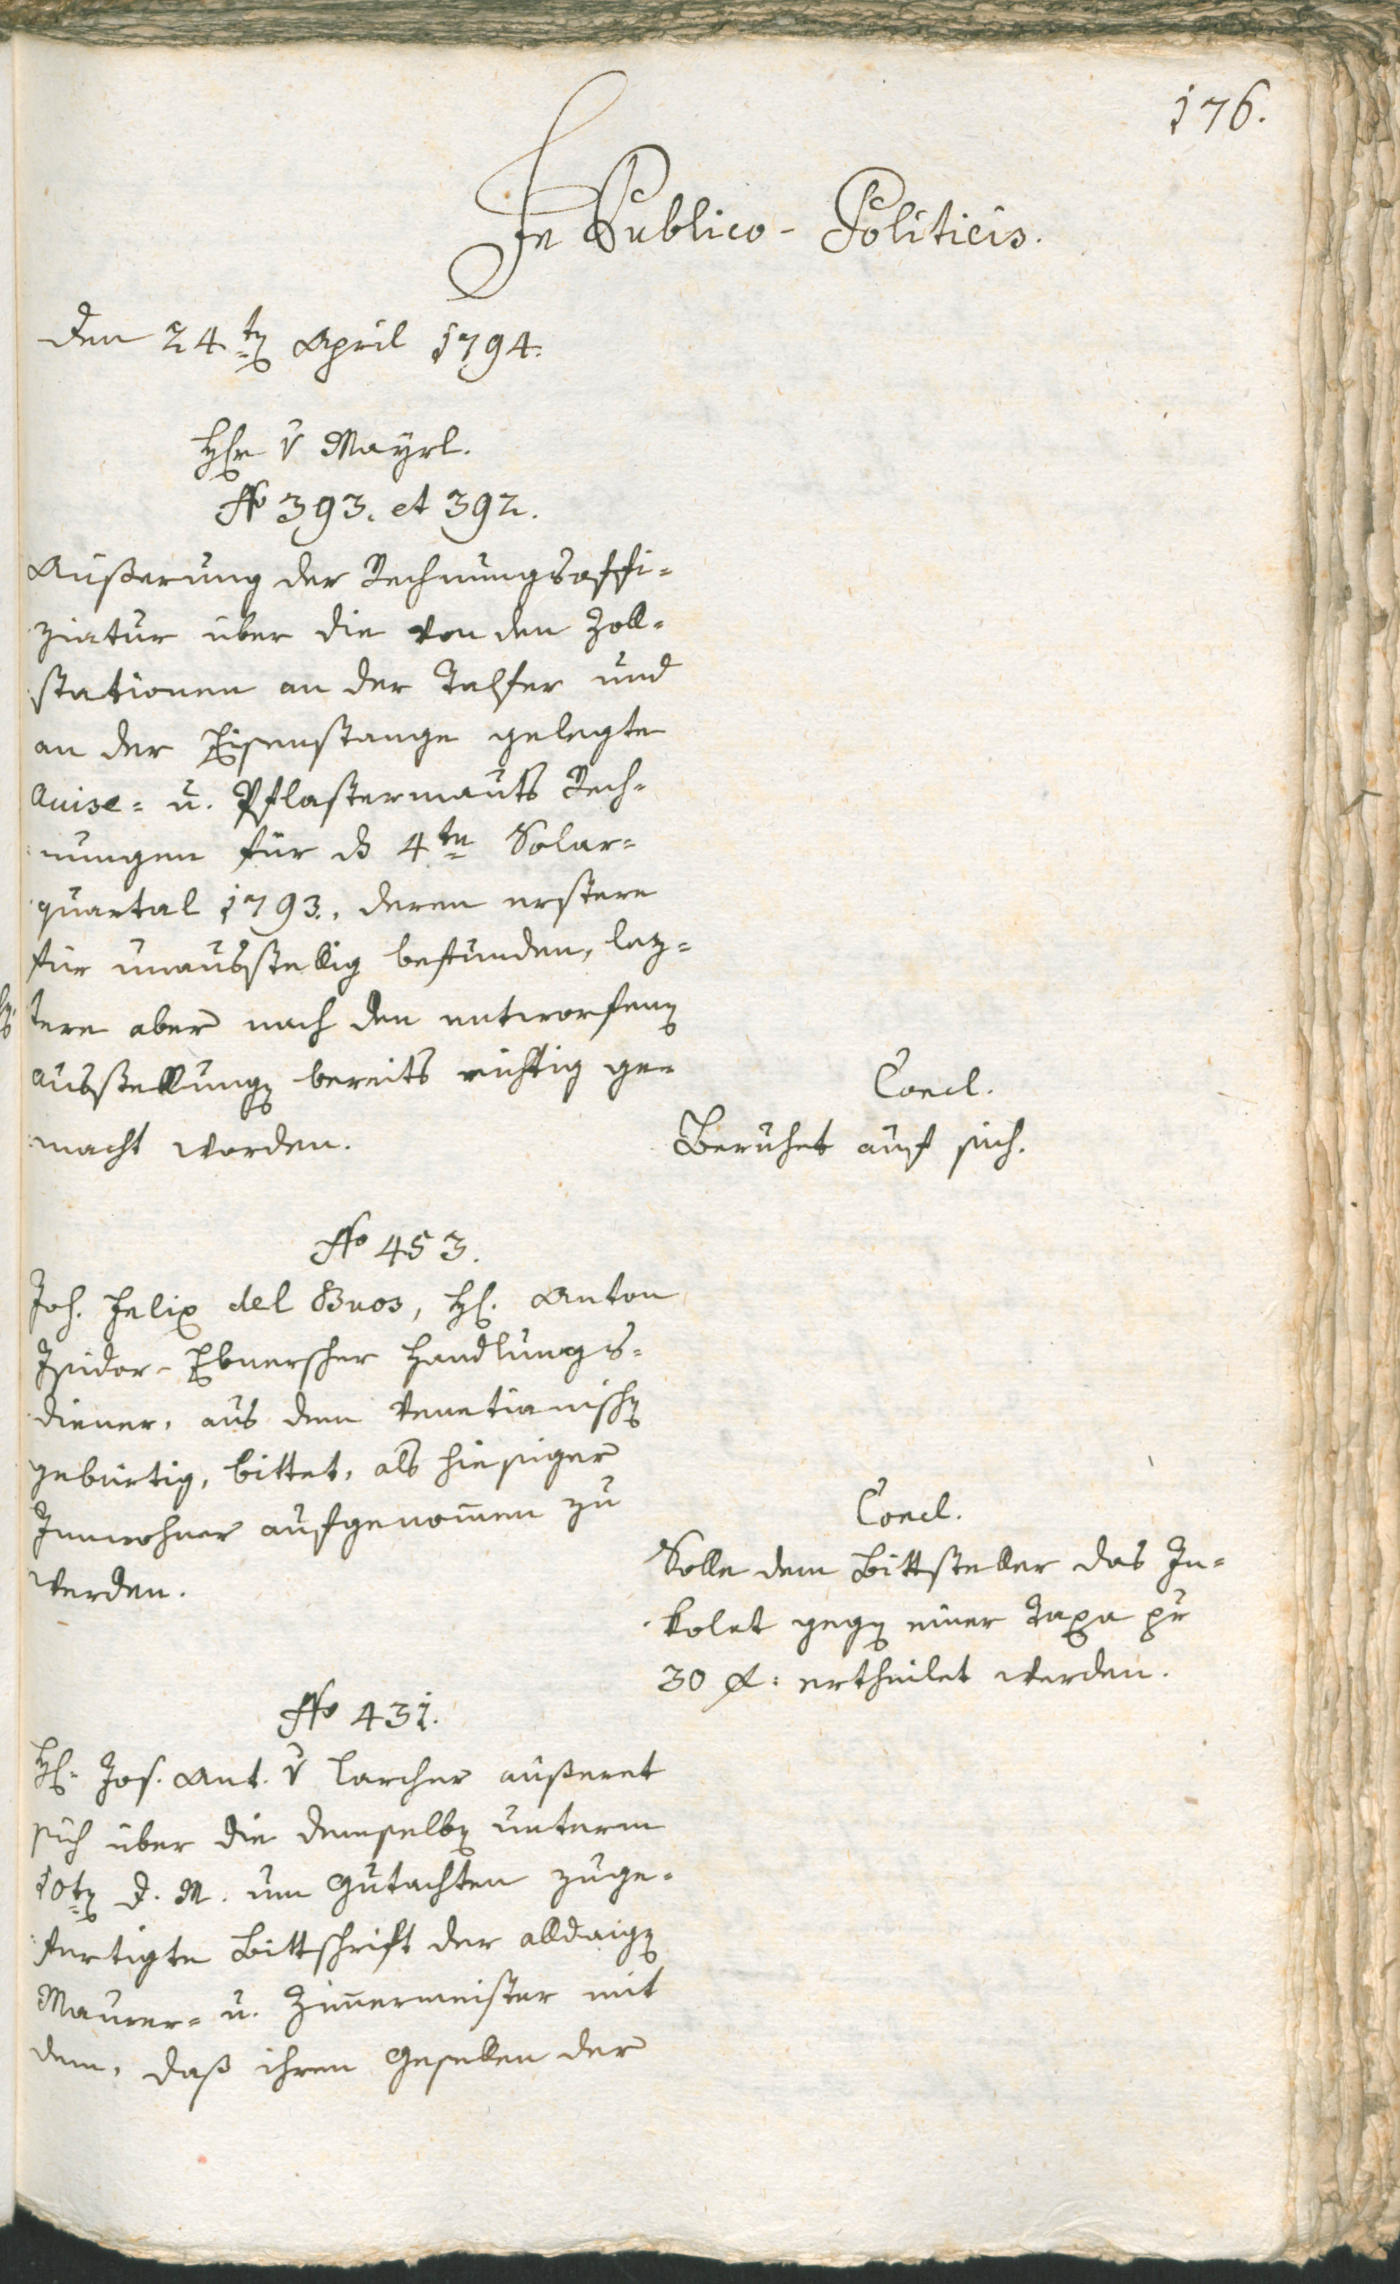 176.
In Publico-Politicis.
Den 24ten April 1794.
Hr v Mayrl.
No 393. et 392.
Äußerung der Rechnungsoffi=
ziatur über die von den Zoll=
stationen an der Talfer und
an der Eisenstange gelegte
Avise= u. Pflastermauts Rech=
nungen für ds 4te Solar=
quartal 1793., deren erstere
für unausstellig befunden, lez=
tere aber nach den entworfenen
Ausstellungen bereits richtig ge=
macht worden.
Concl.
Beruhet auf sich.
No 453.
Joh. Felix del Buos, H. Anton
Isidor-Ebnerscher Handlungs=
diener, aus dem Venetianischen
gebürtig, bittet, als hiesiger
Innwohner aufgenom̄en zu
werden.
Concl.
Solle dem Bittsteller das In=
kolat gegen einer Taxa pr
30 f: ertheilet werden.
No 431.
H. Jos. Ant. v Larcher äußeret
sich über die demselben unterm
10ten d. M. um Gutachten zuge=
fertigte Bittschrift der alldaigen
Maurer= u. Zim̄ermeister mit
dem, daß ihren Gesellen der